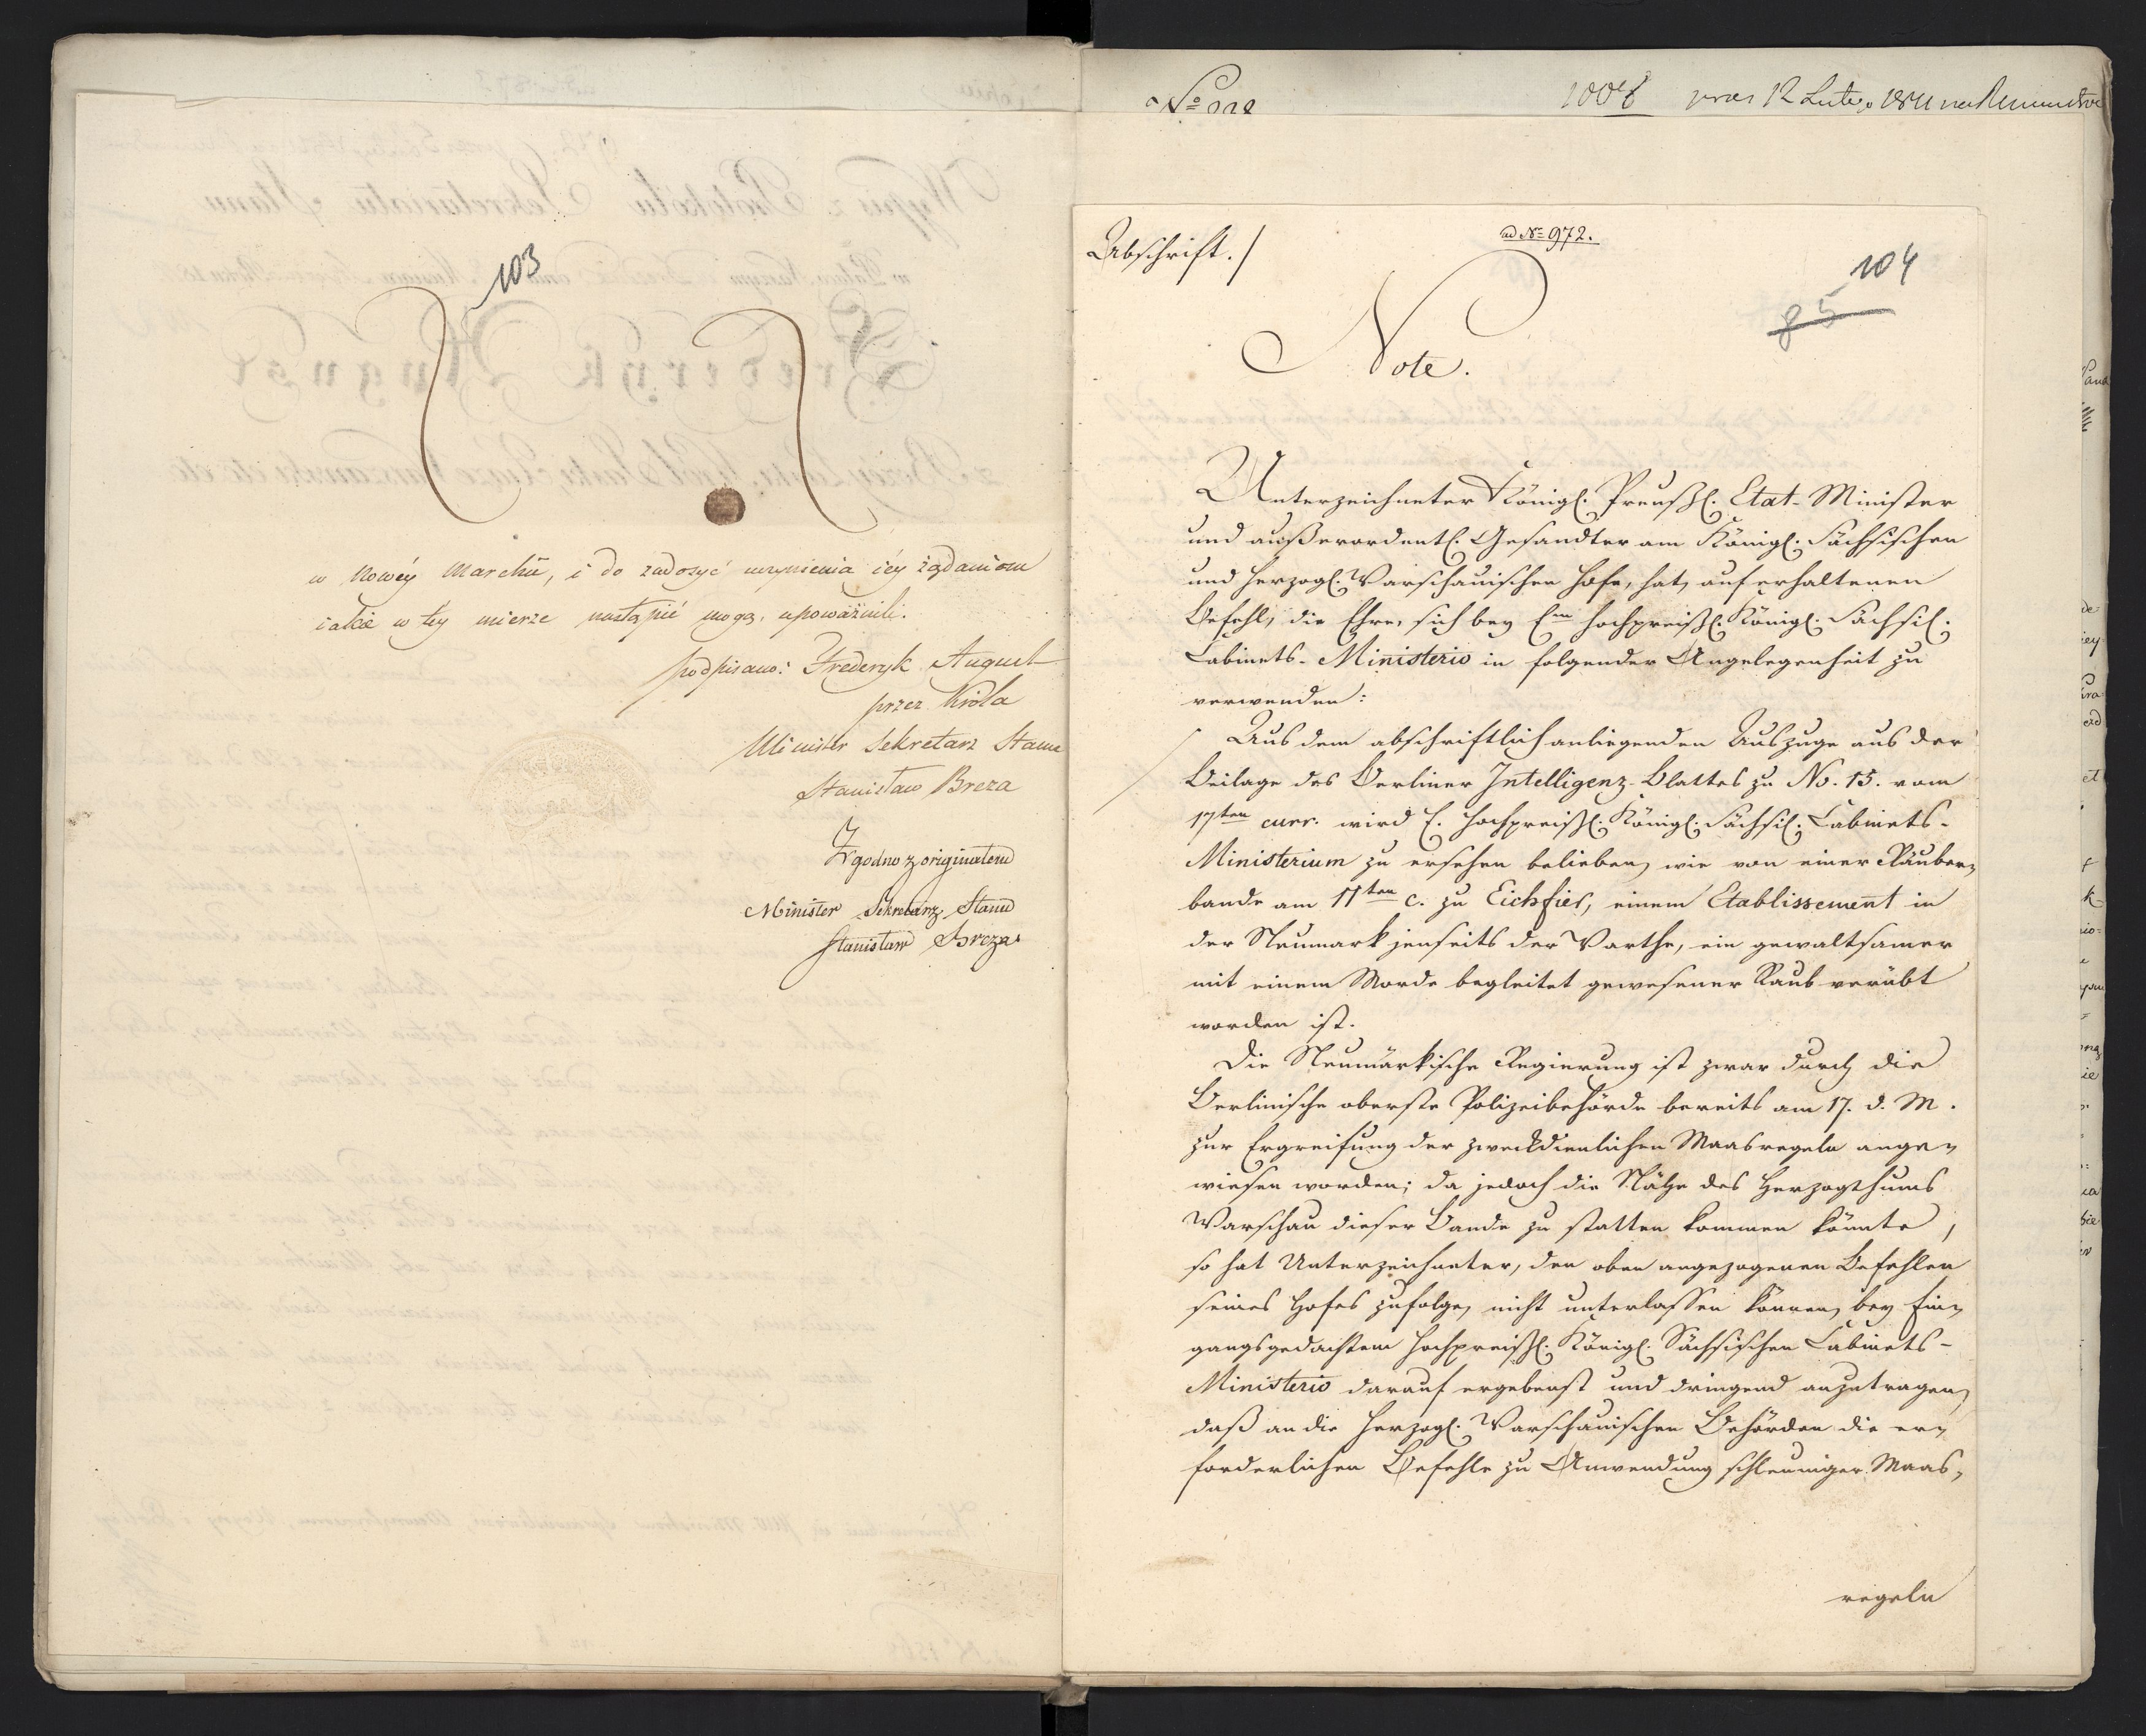 103
w Nowéy Marchii, i do zadosyć uczynienia iéy żądaniom
iakie w téy mierze nastąpić mogą, upoważnili.
podpisano: Frederyk August
przez Króla
Minister Sekretarz Stanu
Stanisław Breza
Zgodno z originałem
Minister Sekretarz Stanu
Stanisław Breza
1008 12 Lutego 1811
Abschrift./
ad No 972.
104
85
Note.
Unterzeichneter Königl. Preußl. Etat-Minister
und außerordentl. Gesandter am Königl. Sächsischen
und Herzogl. Warschauischen Hofe, hat, auf erhaltenen
Befehl, die Ehre, sich bey Em Hochpreißl. Königl. Sächsil.
Cabinets-Ministerio in folgender Angelegenheit zu
verwenden:
Aus dem abschriftlich anliegenden Auszuge aus der
Beilage des Berliner Intelligenz-Blattes zu No. 15. vom
17ten curr. wird E. Hochpreißl. Königl. Sächsil. Cabinets-
Ministerium zu ersehen belieben, wie von einer Räuber-
bande am 11ten c. zu Eichfier, einem Etablissement in
der Neumark jenseits der Warthe, ein gewaltsamer
mit einem Morde begleitet gewesener Raub verübt
worden ist.
Die Neumärkische Regierung ist zwar durch die
Berlinische oberste Polizeibehörde bereits am 17. d. M.
zur Ergreifung der zweckdienlichen Maasregeln ange-
wiesen worden; da jedoch die Nähe des Herzogthums
Warschau dieser Bande zu statten kommen könnte,
so hat Unterzeichneter, den oben angezogenen Befehlen
seines Hofes zufolge, nicht unterlassen können, bey Ein-
gangsgedachtem Hochpreißl. Königl. Sächsischen Cabinets-
Ministerio darauf ergebenst und dringend anzutragen,
daß an die Herzogl. Warschauischen Behörden die er-
forderlichen Befehle zu Anwendung schleuniger Maas-
regeln